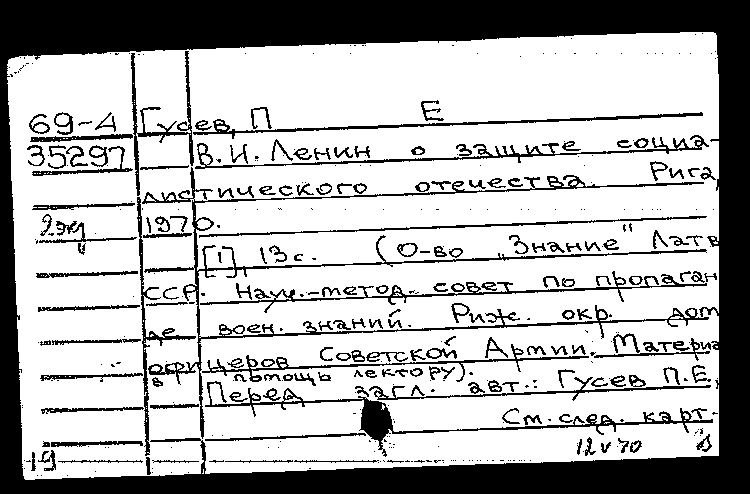 69-4 Гусев, П Е
35297 В.И. Ленин о защите социа-
листического отечества. Рига,
2 экз 1970.
[1], 13 с. (О-во „Знание" Латв
ССР. Науч.-метод. совет по пропаган
де воен. знаний. Риж. окр. дом
офицеров Советской Армии. Материа
в помощь лектору).
Перед загл. авт.: Гусев П.Е.
См. след. карт.
19 12 V 70